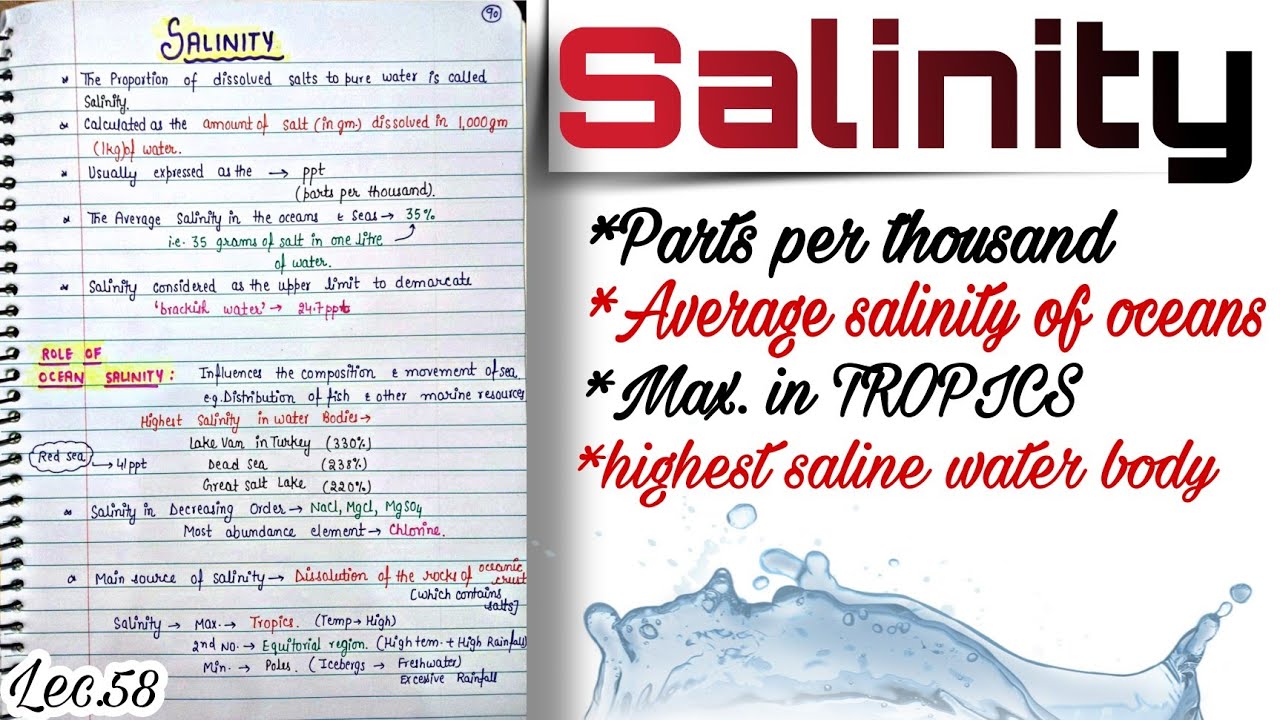 90
SALINITY
* The Proportion of dissolved salts to pure water is called
Salinity.
* Calculated as the amount of salt (in gm) dissolved in 1,000gm
(1kg) of water.
* Usually expressed as the → ppt
(parts per thousand).
* The Average Salinity in the oceans & seas → 35%
i.e. 35 grams of salt in one litre
of water.
* Salinity considered as the upper limit to demarcate
'brackish water' → 24.7 ppt
ROLE OF
OCEAN SALINITY : Influences the composition & movement of sea
e.g. Distribution of fish & other marine resources
Highest Salinity in water Bodies →
Lake Van in Turkey (330%)
Red sea → 41ppt Dead sea (238%)
Great salt Lake (220%)
* Salinity in Decreasing Order → NaCl, MgCl, MgSO4
Most abundance element → Chlorine.
* Main source of salinity → Dissolution of the rocks of oceanic
crust
[which contains
salts]
Salinity → Max. → Tropics. (Temp → High)
2nd No. → Equitorial region. (High tem. + High Rainfall)
Min. → Poles. (Icebergs → Freshwater)
Excessive Rainfall
Lec.58
Salinity
*Parts per thousand
*Average salinity of oceans
*Max. in TROPICS
*highest saline water body